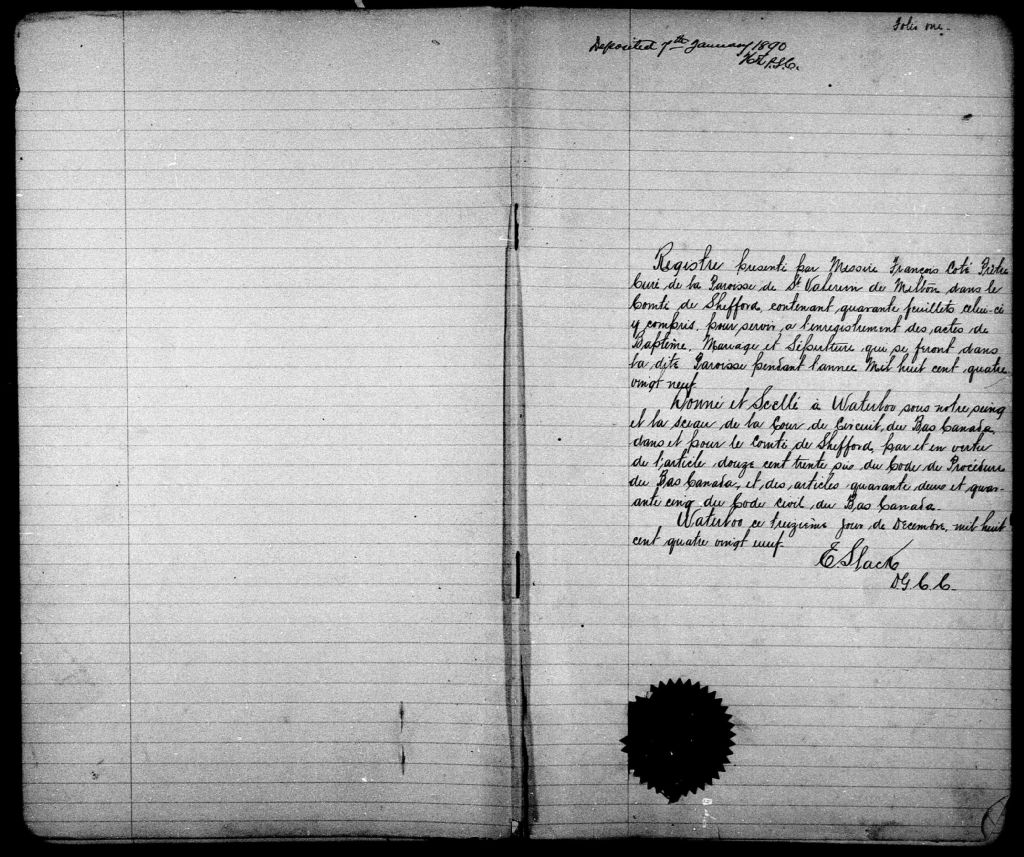 Folio one.
Deposited 7th January 1890
P.S.C.
Registre presenté par Messire François Coté Prêtre
Curé de la Paroisse de St Valerien de Milton dans le
Comté de Shefford, contenant quarante feuillets celui-ci
y compris, pour servir a l'enregistrement des actes de
Baptême, Mariage et Sépulture qui se feront dans
la dite Paroisse pendant l'annee Mil huit cent quatre
vingt neuf.
Donné et Scellé à Waterloo sous notre seing
et la sceau de la Cour de Circuit du Bas Canada
dans et pour le Comté de Shefford, par et en vertu
de l'article douze cent trente six du Code de Procédure
du Bas Canada, et des articles quarante deux et quar-
ante cinq du Code civil du Bas Canada.
Waterloo ce treizieme jour de Decembre, mil huit
cent quatre vingt neuf.
E. Slack
D.G.C.C.